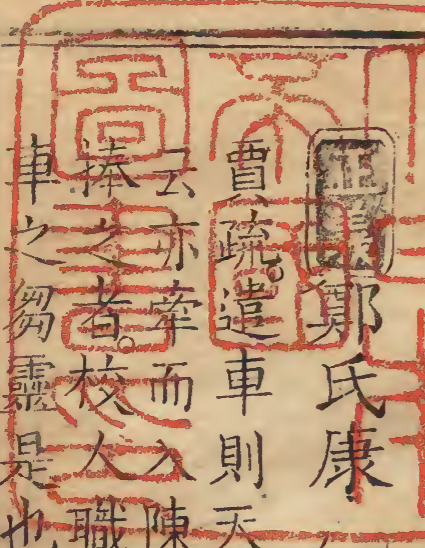 鄭氏康
賈疏遣車則天
云亦牽而入陳
捧之者。校人職
車之芻靈是也